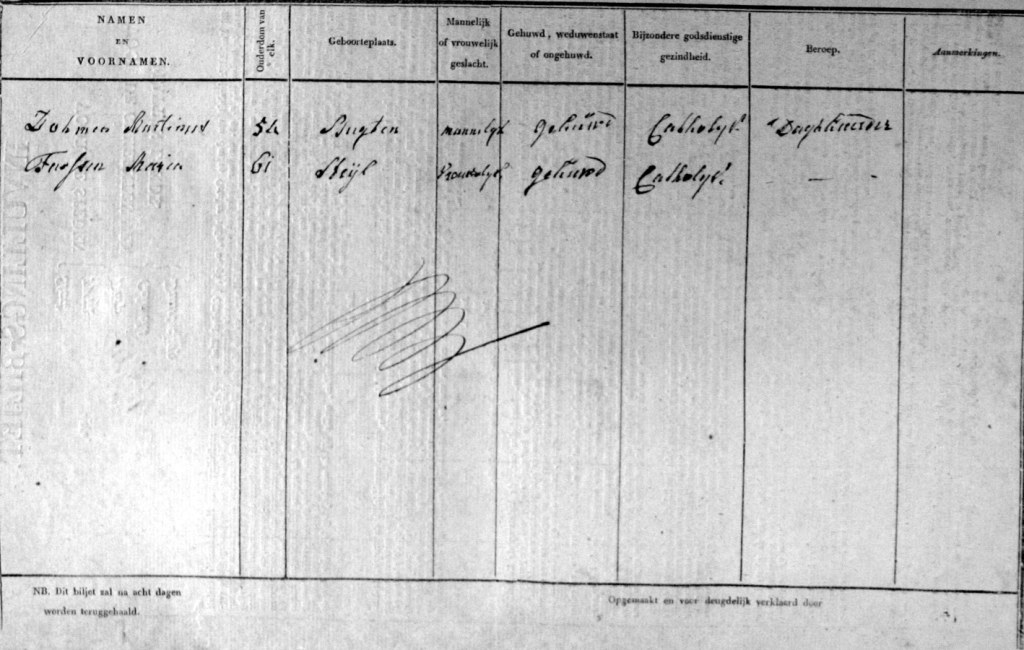 NAMEN EN VOORNAMEN. Ouderdom van elk. Geboorteplaats. Mannelijk of vrouwelijk geslacht. Gehuwd, weduwenstaat of ongehuwd. Bijzondere godsdienstige gezindheid. Beroep. Aanmerkingen.
Dohmen Martinus 54 Bugten mannelyk gehuwd Catholyk Daghluurder
Maria 61 Steijl Vrouwelyk gehuwd Catholyk — —
NB. Dit biljet zal na acht dagen
worden teruggehaald.
Opgemaakt en voor deugdelijk verklaard door